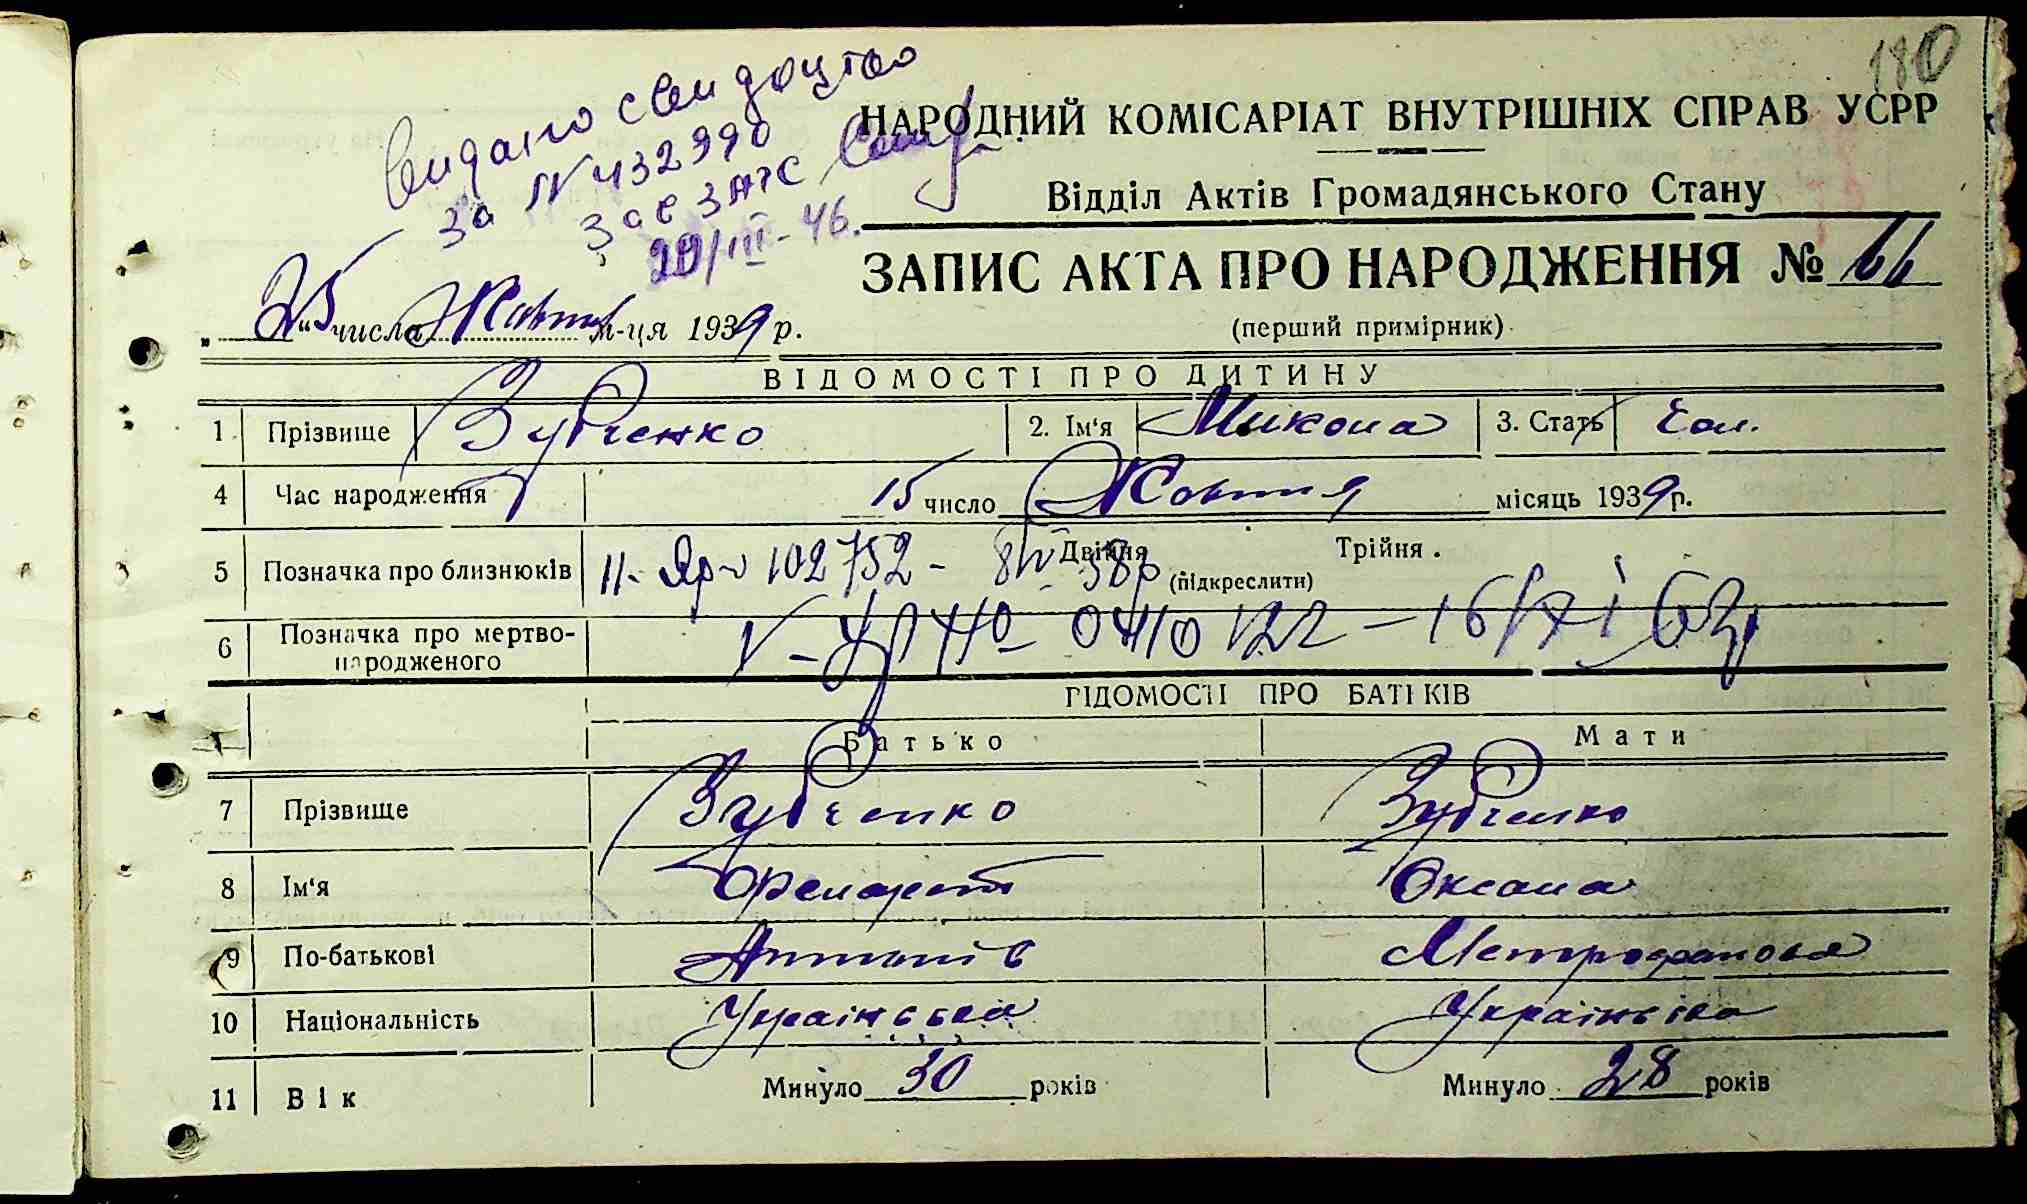 180
Видано свидоцтво
за N 432990
Зав ЗАГС
29/III-46.
НАРОДНИЙ КОМІСАРІАТ ВНУТРІШНІХ СПРАВ УСРР
Відділ Актів Громадянського Стану
ЗАПИС АКТА ПРО НАРОДЖЕННЯ № 66
„25“ числа Жовтня м-ця 1939 р.
(перший примірник)
ВІДОМОСТІ ПРО ДИТИНУ
1 Прізвище Зубченко 2. Ім'я Микола 3. Стать Чол.
4 Час народження 15 число Жовтня місяць 1939 р.
5 Позначка про близнюків Двійня Трійня.
(підкреслити)
II- 102752 - 58р
6 Позначка про мертво-
народженого
ВІДОМОСТІ ПРО БАТЬКІВ
Батько Мати
7 Прізвище Зубченко Зубченко
8 Ім'я Оксана
9 По-батькові Метрофановна
10 Національність
11 Вік Минуло 30 років Минуло 28 років